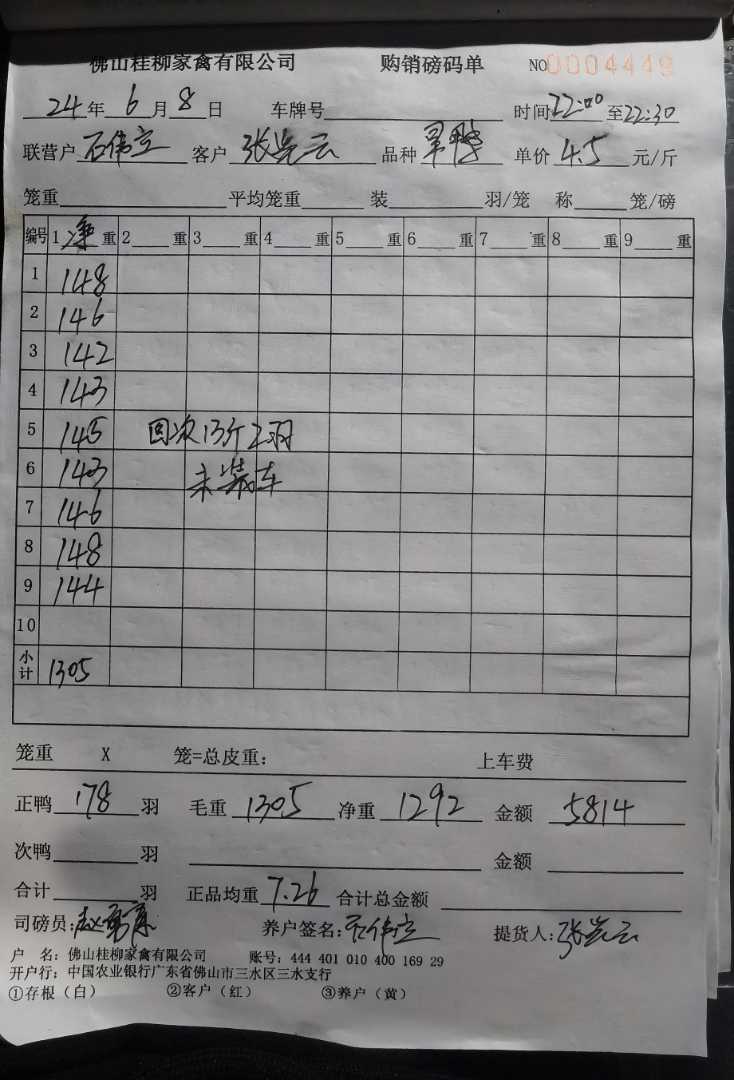 佛山桂柳家禽有限公司 购销磅码单 NO 0004449
24年6月8日 车牌号 时间22:00至22:30
联营户 石伟立 客户 张 云 品种 单价 4.5 元/斤
笼重 平均笼重 装 羽/笼 称 笼/磅
编号 1 净 重 2 重 3 重 4 重 5 重 6 重 7 重 8 重 9 重
1 148
2 146
3 142
4 143
5 145 回次13斤2羽
6 143 未装车
7 146
8 148
9 144
10
小计 1305
笼重 X 笼=总皮重: 上车费
正鸭 178 羽 毛重 1305 净重 1292 金额 5814
次鸭 羽 金额
合计 羽 正品均重 7.26 合计总金额
司磅员: 赵 养户签名: 石伟立 提货人: 张 云
户 名: 佛山桂柳家禽有限公司 账号: 444 401 010 400 169 29
开户行: 中国农业银行广东省佛山市三水区三水支行
①存根（白） ②客户（红） ③养户（黄）